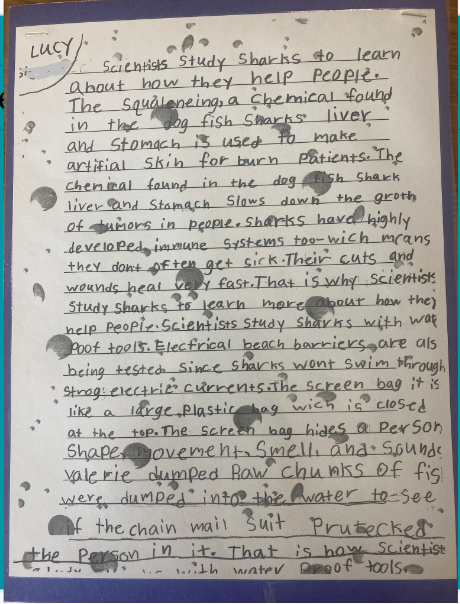 LUCY
Scientists Study Sharks to learn
about how they help People.
The Squaleneing, a Chemical found
in the dog fish Sharks liver
and Stomach is used to make
artifial Skin for burn Patients. The
chemical found in the dog fish Shark
liver and Stamach Slows down the groth
of tumors in people. Sharks have highly
developed immune Systems too-wich means
they dont often get sick. Their cuts and
wounds heal very fast. That is why Scientists
Study Sharks to learn more about how they
help People. Scientists Study Sharks with wat
Poof tools. Electrical beach barriers are als
being tested Since Sharks wont Swim through
Strog electric Currents. The Screen bag it is
like a large Plastic bag wich is closed
at the top. The Screen bag hides a Person
Shape, movement, Smell, and Sounds
Valerie dumped Raw Chunks Of fis
were dumped into the water to See
if the chain mail Suit Prutecked
the Person in it. That is how Scientist
with water Proof tools